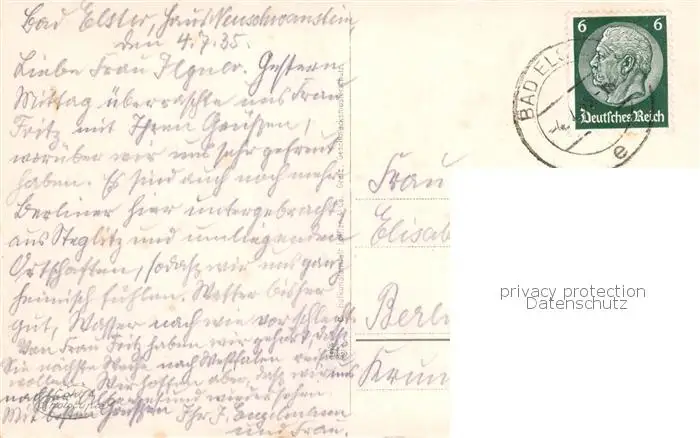 Bad Elster, Haus Neuschwanstein,
den 4.7.35.
Liebe Frau Ilgner. Gestern
Mittag überraschte uns Frau
Fritz mit Ihren Grüßen,
worüber wir uns sehr gefreut
haben. Es sind auch noch mehr
Berliner hier untergebracht,
aus Steglitz und umliegenden
Ortschaften, sodaß wir uns ganz
heimisch fühlen. Wetter bisher
gut, Wasser nach wie vor schlecht.
Von Frau Fritz haben wir gehört, daß
Sie nächste Woche nach Westfalen reisen
wollen. Wir hoffen aber, daß wir uns
nachher gesund wieder sehen.
Mit besten Grüßen Ihr J. Engelmann
und Frau.
6 6
Deutsches Reich
BAD EL
e
Frau
Elisab
Berli
Krum
privacy protection
Datenschutz